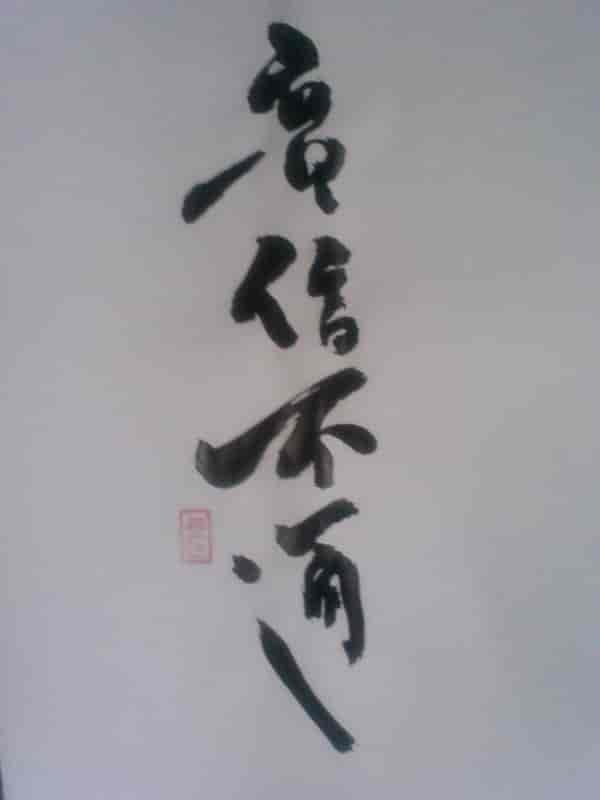 音信不通